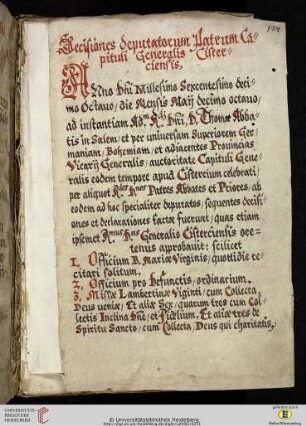 Decisiones deputatorum Patrum Ca-
pituli Generalis Cister-
ciensis,
Anno Dni Millesimo Sexcentesimo deci-
mo Octavo, die Mensis Maij decimo octavo,
ad instantiam Adm. R.di Dni D. Thomæ Abba-
tis in Salem, et per universam Superiorem Ger-
maniam, Bohemiam, et adiacentes Provincias
Vicarij Generalis, auctoritate Capituli Gene-
ralis eodem tempore apud Cistercium celebrati,
per aliquot R.dos Patres Abbates et Priores, ab
eodem ad hoc specialiter deputatos, sequentes decisi-
ones et declarationes factæ fuerunt, quas etiam
ipsemet R.mus Dns Generalis Cisterciensis ore-
tenus approbavit: scilicet
1. Officium B. Mariæ Virginis, quotidie re-
citari solitum.
2. Officium pro Defunctis, ordinarium.
3. Missæ Lambertinæ Viginti, cum Collecta,
Deus veniæ, Et aliæ Sex, quarum tres cum Col-
lectis Inclina Dne, et Fidelium. Et aliæ tres de
Spiritu Sancto, cum Collecta, Deus qui charitatis,
UNIVERSITÄTS-
BIBLIOTHEK
HEIDELBERG
© Universitätsbibliothek Heidelberg
gefördert durch
Baden-Württemberg